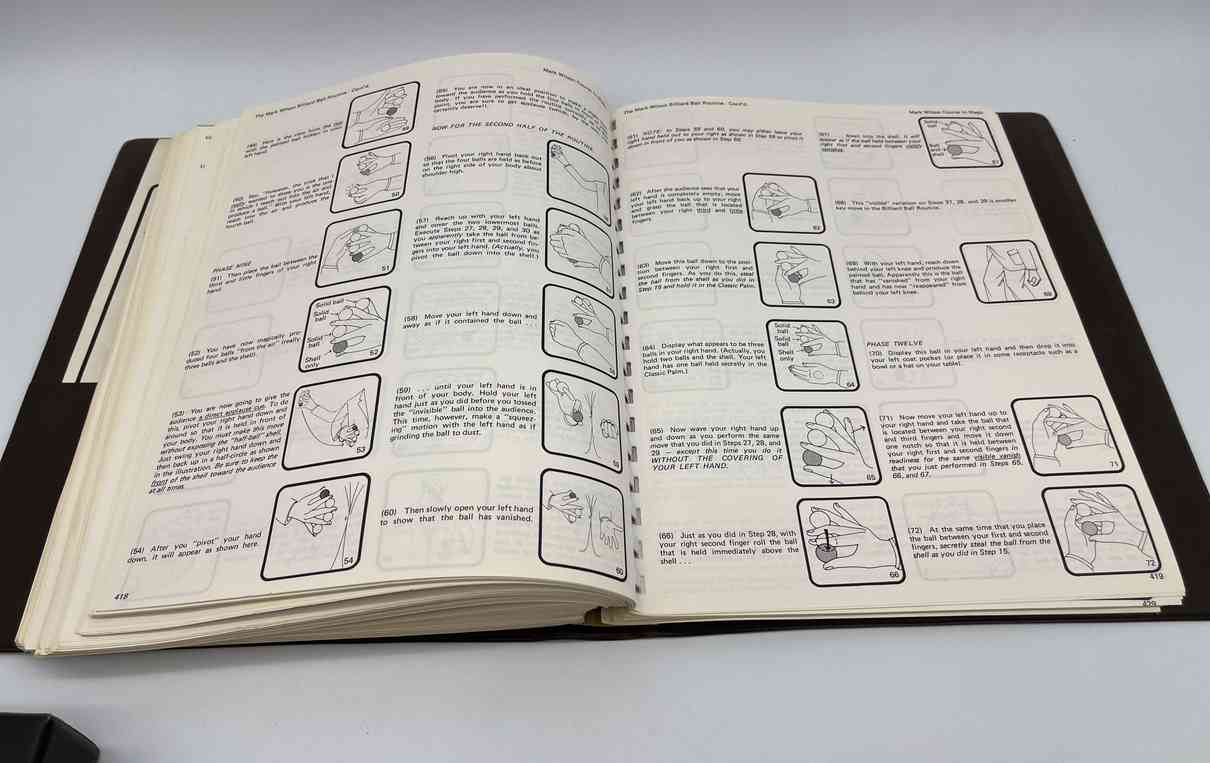 The Mark Wilson Billiard Ball Routine - Cont'd.
50
51
(52) You have now magically pro-
duced four balls "from the air" (really
three balls and the shell).
Solid ball
Solid
ball
Solid
ball
Shell
only
52
PHASE NINE
(51) Then place the ball between the
third and little fingers of your right
hand
(53) You are now going to give the
audience a direct applause cue. To do
this, pivot your right hand down and
around so that it is held in front of
your body. You must make this move
without exposing the "half-ball" shell.
Just swing your right hand down and
then back up in a half-circle as shown
in the illustration. Be sure to keep the
front of the shell toward the audience
at all times.
53
(54) After you "pivot" your hand
down, it will appear as shown here.
54
418
NOW FOR THE SECOND HALF OF THE ROUTINE
(56) Pivot your right hand back out
so that the four balls are held as before
on the right side of your body about
shoulder high.
(57) Reach up with your left hand
and cover the two lowermost balls.
Execute Steps 27, 28, 29, and 30 as
you apparently take the ball from be-
tween your right first and second fin-
gers into your left hand. (Actually, you
pivot the ball down into the shell.)
(58) Move your left hand down and
away as if it contained the ball
(59) . . . until your left hand is in
front of your body. Hold your left
hand just as you did before you tossed
the "invisible" ball into the audience.
This time, however, make a "squeez-
ing" motion with the left hand as if
grinding the ball to dust.
(60) Then slowly open your left hand
to show that the ball has vanished.
60
The Mark Wilson Billiard Ball Routine - Cont'd.
Mark Wilson Course in Magic
(61) NOTE: In Steps 59 and 60, you may either leave your
right hand held out to your right as shown in Step 59 or pivot it
down in front of you as shown in Step 60.
(62) After the audience sees that your
left hand is completely empty, move
your left hand back up to your right
and grasp the ball that is located
between your right third and little
fingers.
62
(63) Move this ball down to the posi-
tion between your right first and
second fingers. As you do this, steal
the ball from the shell as you did in
Step 15 and hold it in the Classic Palm.
63
(64) Display what appears to be three
balls in your right hand. (Actually, you
hold two balls and the shell. Your left
hand has one ball held secretly in the
Classic Palm.)
Solid
ball
Solid
ball
Shell
only
64
(65) Now wave your right hand up
and down as you perform the same
move that you did in Steps 27, 28, and
29 — except this time you do it
WITHOUT THE COVERING OF
YOUR LEFT HAND.
65
(66) Just as you did in Step 28, with
your right second finger roll the ball
that is held immediately above the
shell . . .
66
(67) . . . down into the shell. It will
appear as if the ball held between your
right first and second fingers visibly
vanishes.
Solid
ball
Ball
and
shell
67
(68) This "visible" variation on Steps 27, 28, and 29 is another
key move in the Billiard Ball Routine.
(69) With your left hand, reach down
behind your left knee and produce the
palmed ball. Apparently this is the ball
that has "vanished" from your right
hand and has now "reappeared" from
behind your left knee.
69
PHASE TWELVE
(70) Display this ball in your left hand and then drop it into
your left coat pocket (or place it in some receptacle such as a
bowl or a hat on your table).
(71) Now move your left hand up to
your right hand and take the ball that
is located between your right second
and third fingers and move it down
one notch so that it is held between
your right first and second fingers in
readiness for the same visible vanish
that you just performed in Steps 65,
66, and 67.
71
(72) At the same time that you place
the ball between your first and second
fingers, secretly steal the ball from the
shell as you did in Step 15.
72
419